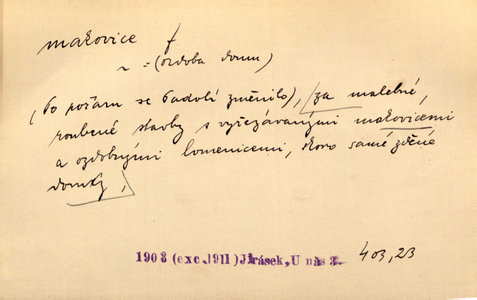 makovice f
~ = (ozdoba domu)
(Po požáru se Padolí změnilo), za malebné,
roubené stavby s vyřezávanými makovicemi
a ozdobnými lomenicemi, skoro samé zděné
domky,
1903 (exc.1911) Jirásek, U nás 3. 403,23